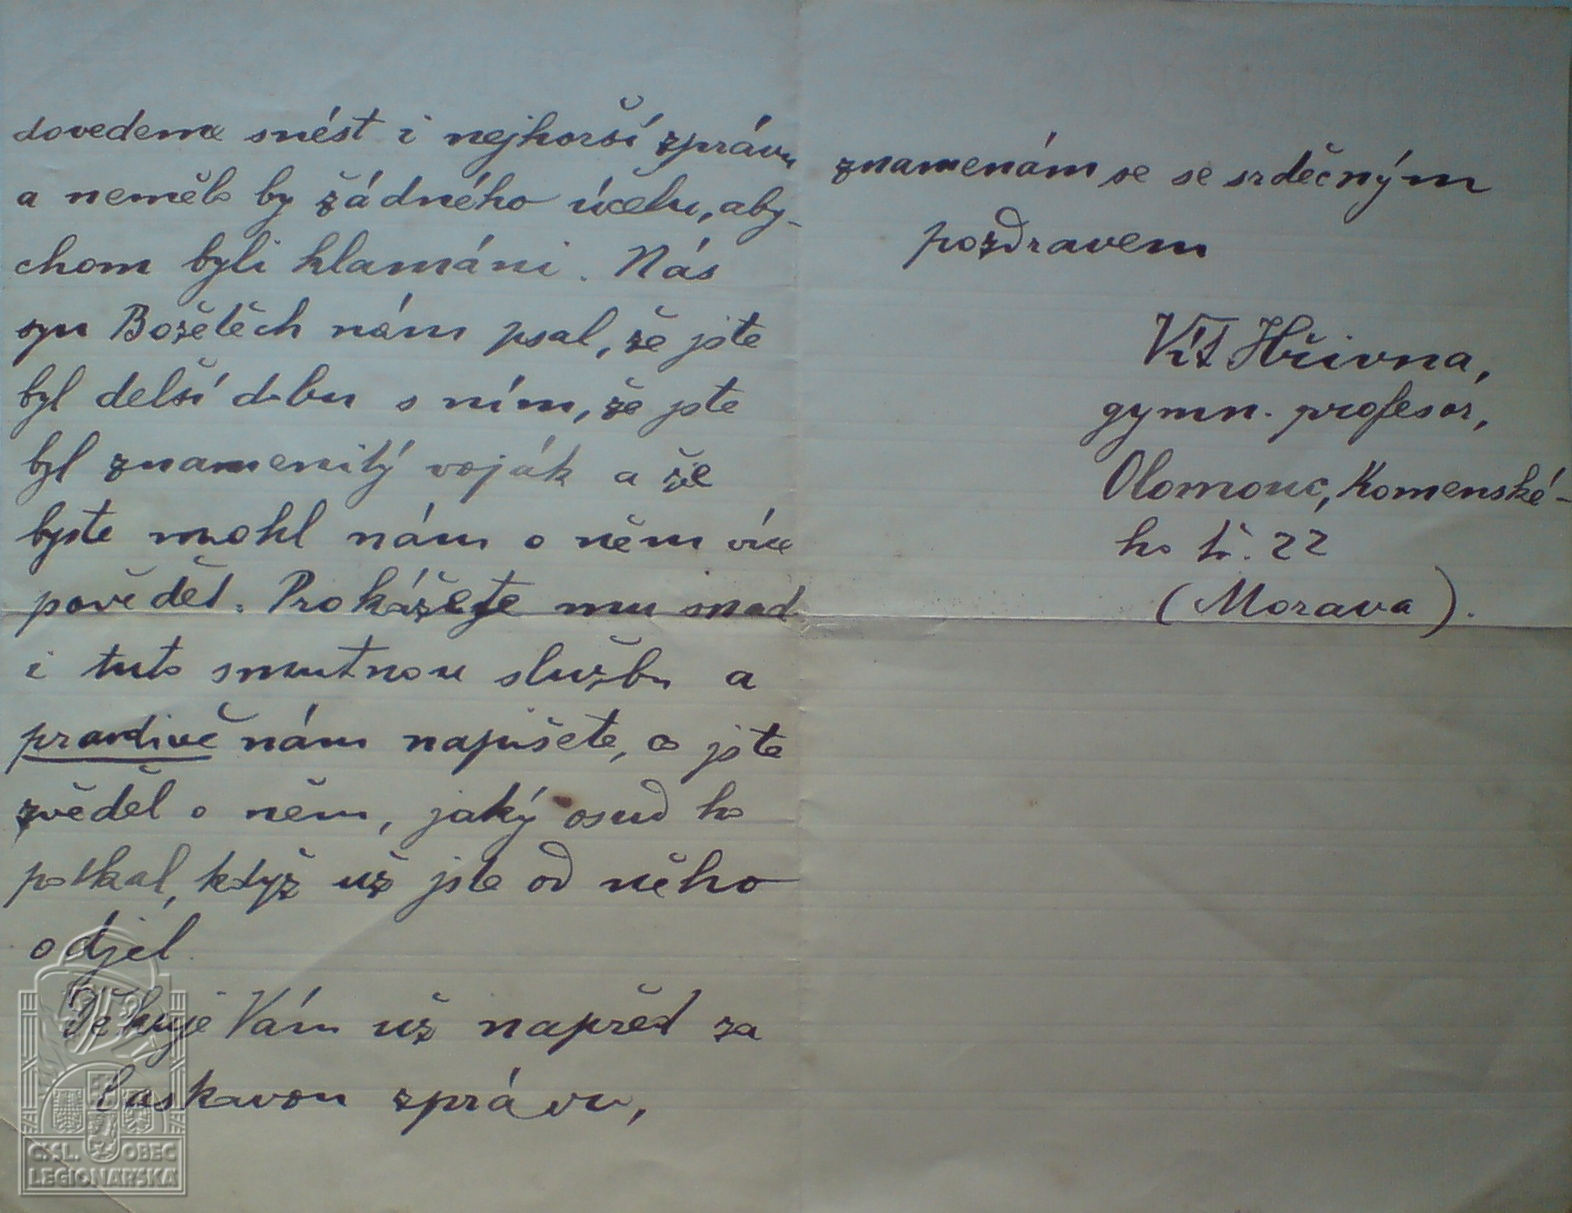 dovedeme snést i nejhorší zprávu
a nemělo by žádného účelu, aby-
chom byli klamáni. Náš
syn Božetěch nám psal, že jste
byl delší dobu s ním, že jste
byl znamenitý voják a že
byste mohl nám o něm více
povědět. Prokážete mu snad
i tuto smutnou službu a
pravdivě nám napíšete, co jste
zvěděl o něm, jaký osud ho
potkal, když už jste od něho
odjel.
Děkuje Vám už napřed za
laskavou zprávu,
znamenám se se srdečným
pozdravem
Vít Hřivna,
gymn. profesor,
Olomouc, Komenské-
ho tř. 22
(Morava).
ČSL. OBEC
LEGIONÁŘSKÁ